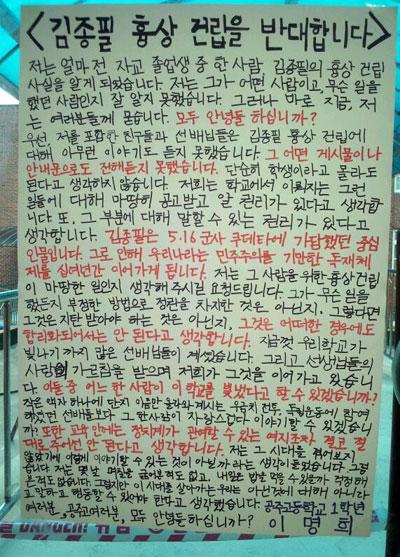 <김종필 흉상 건립을 반대합니다>
저는 얼마 전 자교 졸업생 중 한 사람 김종필의 흉상 건립
사실을 알게 되었습니다. 저는 그가 어떤 사람이고, 무슨 일을
했던 사람인지 잘 알지 못했습니다. 그러나 바로 지금, 저
는 여러분들께 묻습니다. 모두 안녕들 하십니까?
우선 저를 포함한 친구들과 선배님들은 김종필 흉상 건립에
대해 아무런 이야기도 듣지 못했습니다. 그 어떤 게시물이나
안내문으로도 전해듣지 못했습니다. 단순히 학생이라고 몰라도
된다고 생각하지 않습니다. 저희는 학교에서 이뤄지는 그런
일들에 대해 마땅히 공고받고 알 권리가 있다고 생각합
니다. 또, 그 부분에 대해 말할 수 있는 권리가 있다고
생각합니다. 김종필은 5.16 군사 쿠데타에 가담했던 중심
인물입니다. 그로 인해 우리나라는 민주주의를 기만한 독재체
제를 십여년간 이어가게 됩니다. 저는 그 사람을 위한 흉상건립
이 마땅한 일인지 생각해 주시길 요청드립니다. 그가 무슨 일을
했든지 부정한 방법으로 정권을 차지한 것은 아닌지, 그렇다면
그것은 지탄 받아야 하는 것은 아닌지, 그것은 어떠한 경우에도
합리화되어서는 안 된다고 생각합니다. 지금껏 우리학교가
빛나기까지 많은 선배님들이 계셨습니다. 그리고 선생님들의
사랑과 가르침을 받으며 저희가 그것을 이어가고 있습니
다. 이들 중 어느 한 사람이 이 학교를 빛냈다고 할 수 있겠습니까?
작은 액자 하나에 단지 이름만 올라와 계시는 우금치 전투, 독립운동에 참여
하셨던 선배님보다 그 한사람이 자랑스럽다 이야기할 수 있겠습니
까? 또한 교육 안에는 정치계가 관여할 수 있는 여지조차 결코 절
대로 주어선 안 된다고 생각합니다. 저는 그 시대를 겪어보지
않았기에 이렇게 이야기할 수 있는 것이 아닐까 라는 생각이 들었습니다. 그렇습
니다. 저는 몇날 며칠을 굶어본적도 없고, 내일은 밥을 먹을 수 있을까 걱정해
본적도 없습니다. 그렇지만 이 시대를 살아가는 우리는 아닌것에 대해 아니라
고 말하고 행동할 수 있어야 한다고 생각했습니다. 공주고등학교 1학년
여러분, 공주고여러분, 모두 안녕들하십니까? 이 명 희
DANGER!